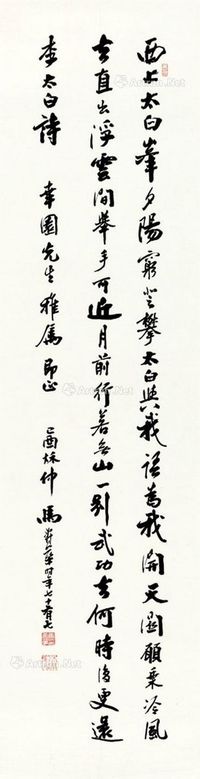 西上太白峯夕陽窮登攀太白與我語為我開天關願乘冷風
去直出浮雲間舉手可近月前行若無山一別武功去何時復更還
李太白詩 幸園先生雅屬即正 己酉秋仲馬壽華時年七十有七